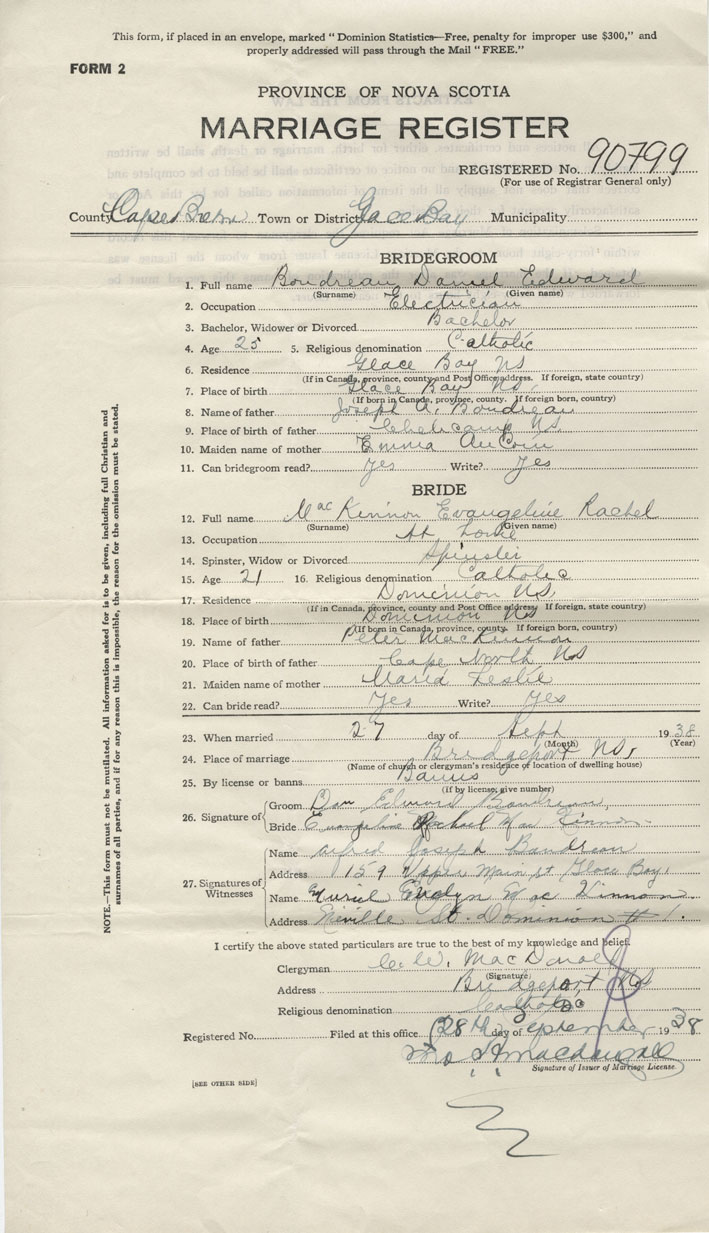 This form, if placed in an envelope, marked "Dominion Statistics—Free, penalty for improper use $300," and
properly addressed will pass through the Mail "FREE."
FORM 2
PROVINCE OF NOVA SCOTIA
MARRIAGE REGISTER
REGISTERED No. 90799
(For use of Registrar General only)
County Cape Breton Town or District Glace Bay Municipality
BRIDEGROOM
1. Full name Boudreau Daniel Edward
(Surname) (Given name)
2. Occupation Electrician
3. Bachelor, Widower or Divorced Bachelor
4. Age 25 5. Religious denomination Catholic
6. Residence Glace Bay NS
(If in Canada, province, county and Post Office address. If foreign, state country)
7. Place of birth Glace Bay NS
(If born in Canada, province, county. If foreign born, country)
8. Name of father Joseph A. Boudreau
9. Place of birth of father Cheticamp NS
10. Maiden name of mother Emma AuCoin
11. Can bridegroom read? Yes Write? Yes
BRIDE
12. Full name MacKinnon Evangeline Rachel
(Surname) (Given name)
13. Occupation At Home
14. Spinster, Widow or Divorced Spinster
15. Age 21 16. Religious denomination Catholic
17. Residence Dominion NS
(If in Canada, province, county and Post Office address. If foreign, state country)
18. Place of birth Dominion NS
(If born in Canada, province, county. If foreign born, country)
19. Name of father Peter MacKinnon
20. Place of birth of father Cape North NS
21. Maiden name of mother Maria Leslie
22. Can bride read? Yes Write? Yes
23. When married 27 day of Sept 1938
(Month) (Year)
24. Place of marriage Bridgeport NS,
(Name of church or clergyman's residence or location of dwelling house)
25. By license or banns Banns
(If by license, give number)
26. Signature of Groom Dan Edward Boudreau
Bride Evangeline Rachael MacKinnon
27. Signatures of Witnesses
Name Alfred Joseph Boudreau
Address 159 Upper Main St Glace Bay,
Name Muriel Evelyn MacKinnon
Address Neville St. Dominion #1.
I certify the above stated particulars are true to the best of my knowledge and belief.
Clergyman C. W. MacDonald
(Signature)
Address Bridgeport NS
Religious denomination Catholic
Registered No. Filed at this office 28th day of September 1938
MacDougall
Signature of Issuer of Marriage License.
[SEE OTHER SIDE]
NOTE.—This form must not be mutilated. All information asked for is to be given, including full Christian and
surnames of all parties, and if for any reason this is impossible, the reason for the omission must be stated.